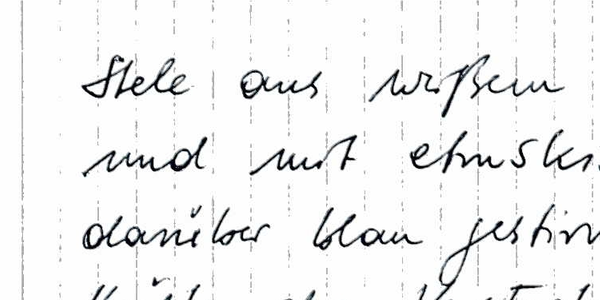 Stele aus weißem
und mit etrusk
darüber blau gestirn